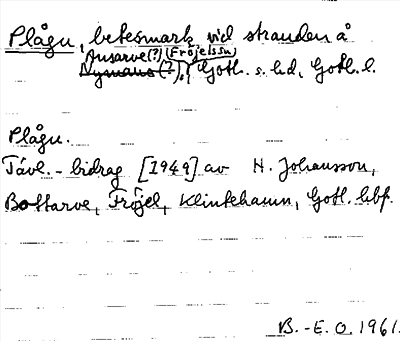 Plågu, betesmark vid stranden å
Ansarve(?) (Fröjelssn)
Nymans (?), Gotl. s. hd, Gotl. l.
Plågu.
Tävl. - bidrag [1949] av H. Johansson,
Bottarve, Fröjel, Klintehamn, Gotl. hbf.
B. - E. O. 1961.